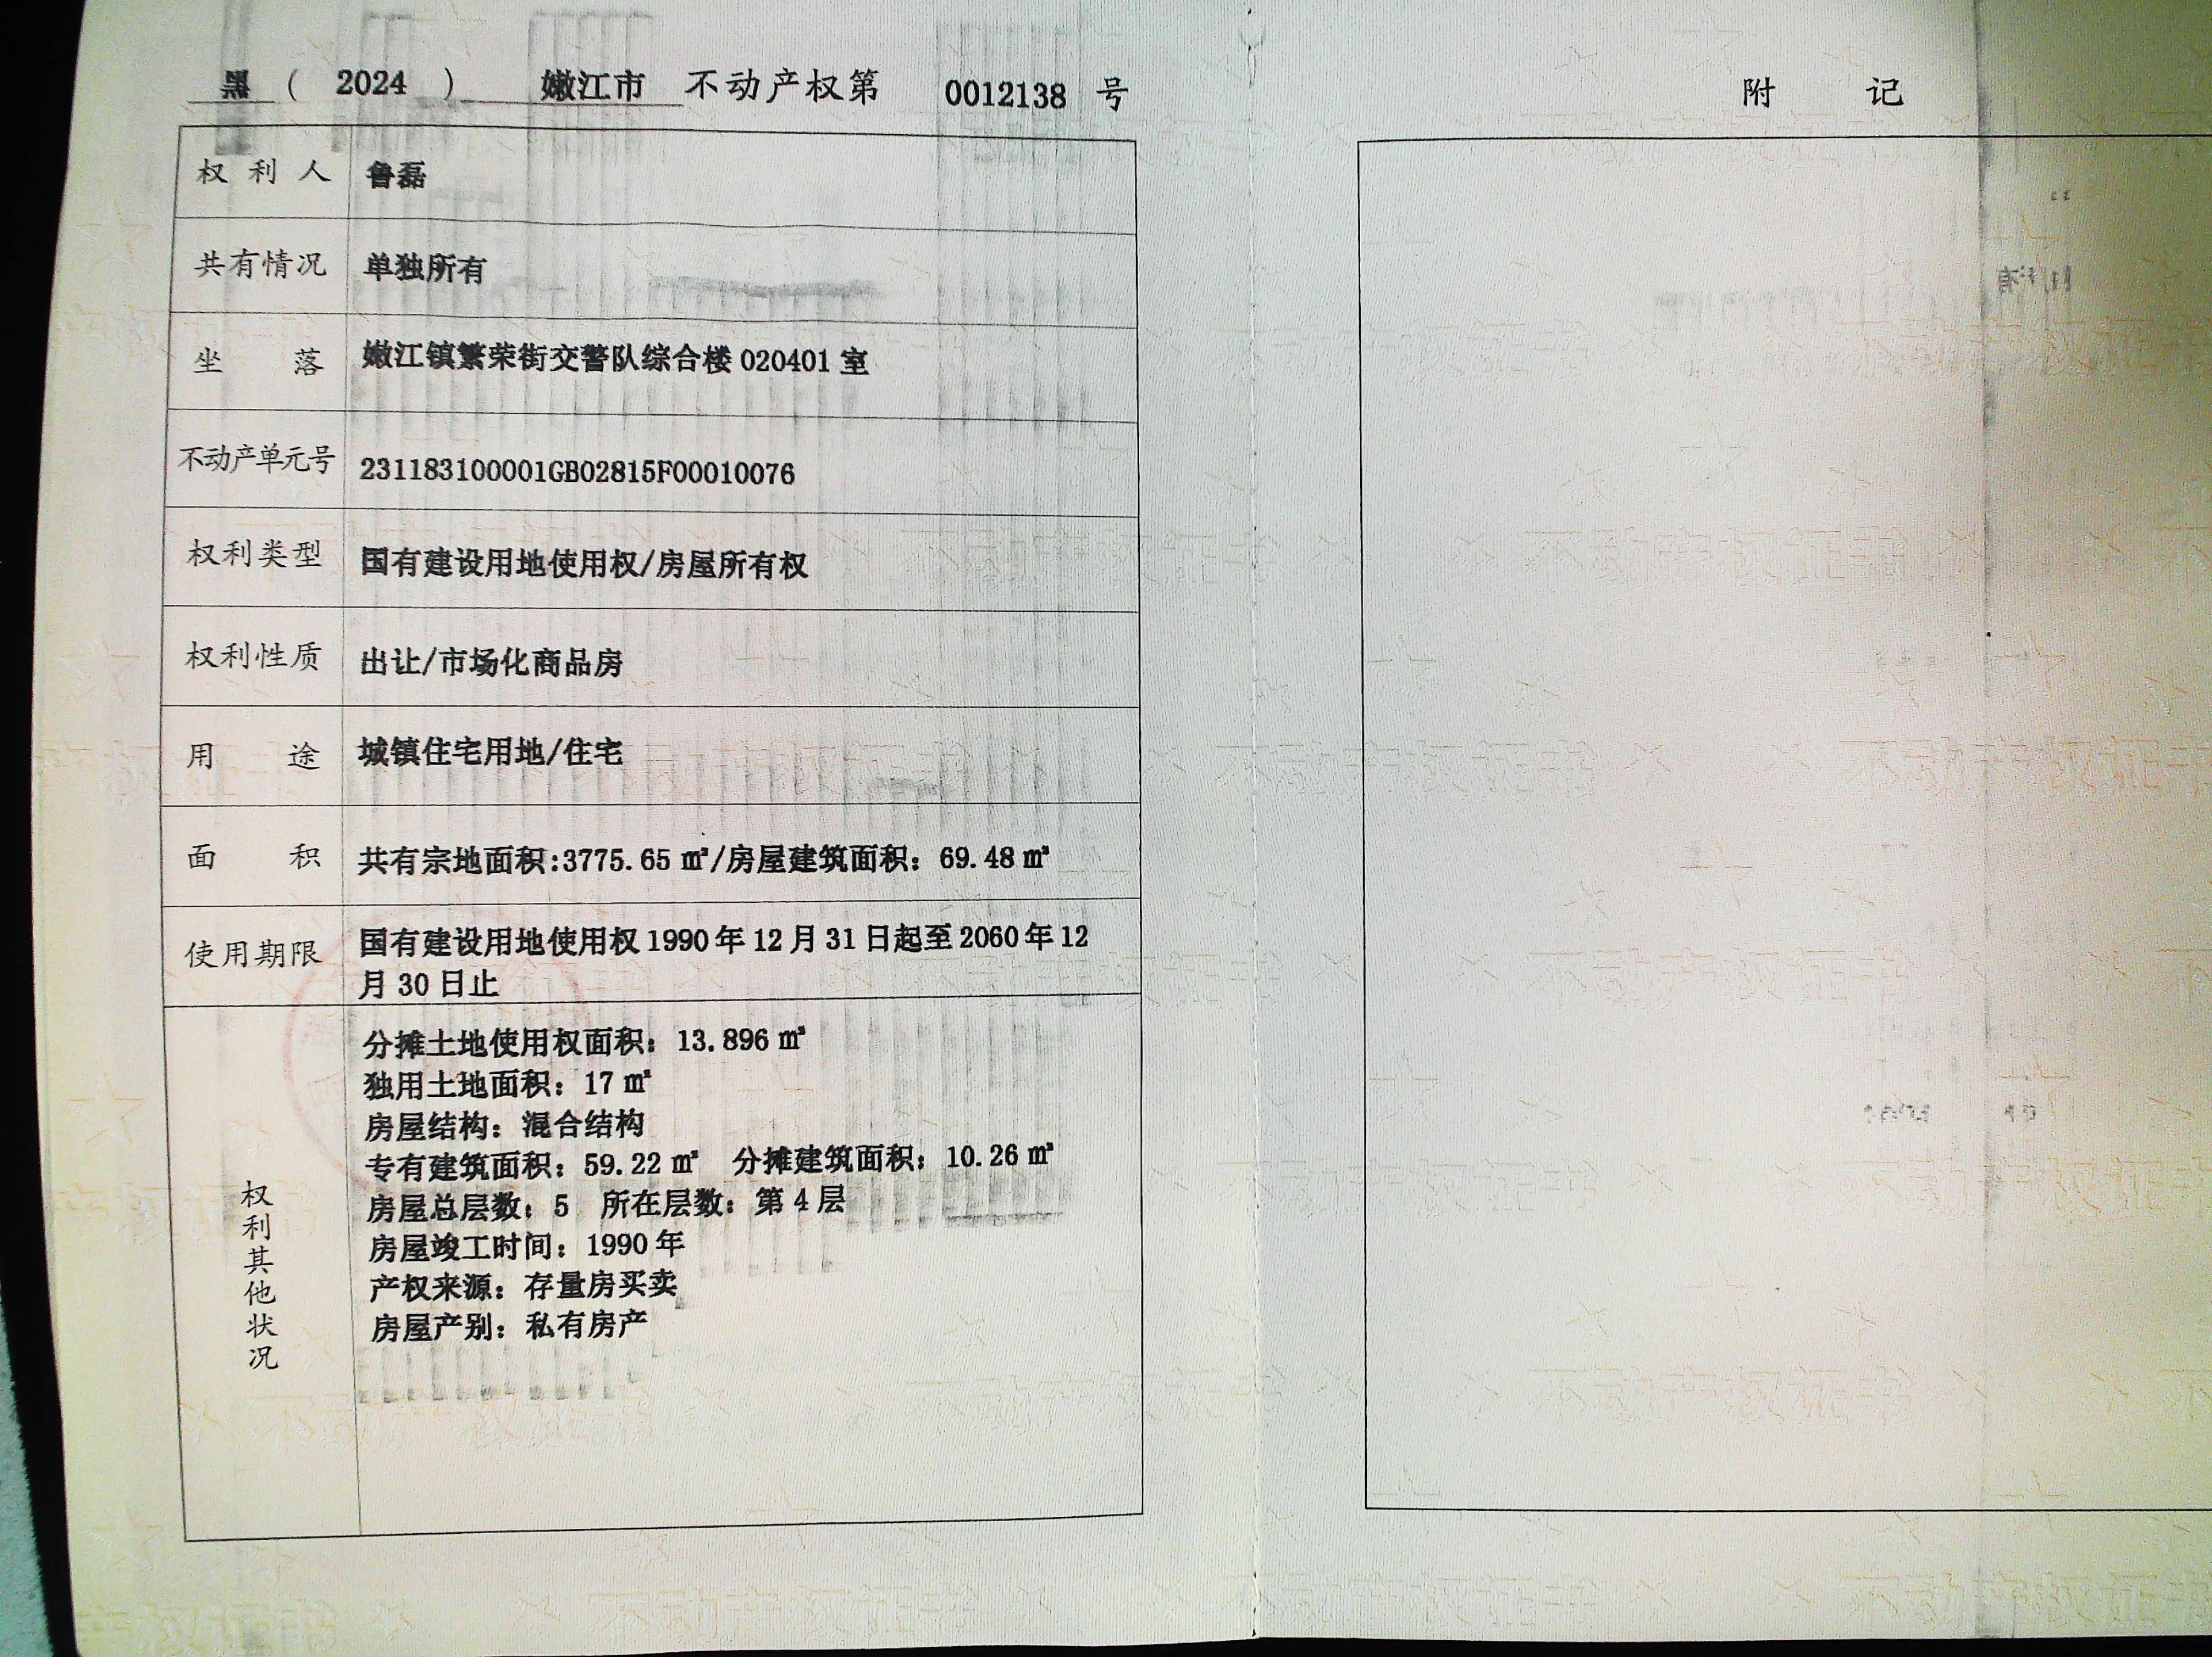 黑 ( 2024 ) 嫩江市 不动产权第 0012138 号
权利人 鲁磊
共有情况 单独所有
坐落 嫩江镇繁荣街交警队综合楼 020401 室
不动产单元号 231183100001GB02815F00010076
权利类型 国有建设用地使用权/房屋所有权
权利性质 出让/市场化商品房
用途 城镇住宅用地/住宅
面积 共有宗地面积:3775.65 ㎡/房屋建筑面积：69.48 ㎡
使用期限 国有建设用地使用权 1990 年 12 月 31 日起至 2060 年 12
月 30 日止
权利其他状况
分摊土地使用权面积：13.896 ㎡
独用土地面积：17 ㎡
房屋结构：混合结构
专有建筑面积：59.22 ㎡ 分摊建筑面积：10.26 ㎡
房屋总层数：5 所在层数：第 4 层
房屋竣工时间：1990 年
产权来源：存量房买卖
房屋产别：私有房产
附记